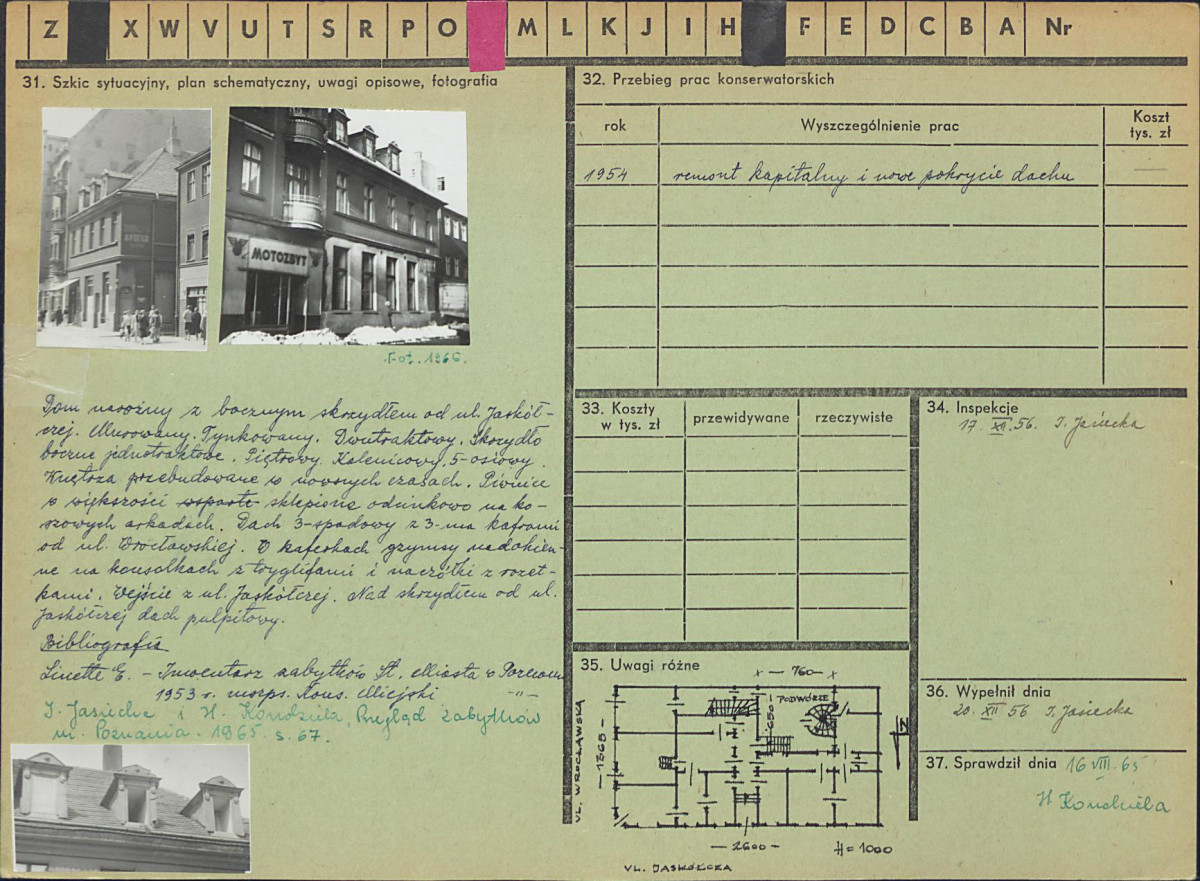 Z X W V U T S R P O M L K J I H F E D C B A Nr
31. Szkic sytuacyjny, plan schematyczny, uwagi opisowe, fotografia
APTEKA
MOTOZBYT
Fot. 1966.
Dom narożny z bocznym skrzydłem od ul. Jaskół-
czej. Murowany. Tynkowany. Dwutraktowy. Skrzydło
boczne jednotraktowe. Piętrowy. Kalenicowy, 5-osiowy.
Wnętrza przebudowane w nowszych czasach. Piwnice
w większości wsparte sklepione odcinkowo na ko-
szowych arkadach. Dach 3-spadowy z 3-ma kaframi
od ul. Wrocławskiej. W kafrach gzymsy nadokien-
ne na konsolkach z tryglifami i naczółki z rozet-
kami. Wejście z ul. Jaskółczej. Nad skrzydłem od ul.
Jaskółczej dach pulpitowy.
Bibliografia
Linette E. - Inwentarz zabytków St. Miasta w Poznaniu
1953 r. mszps. Kons. Miejski -"-
I. Jasiecka i H. Kondziela, Przegląd zabytków
m. Poznania. 1965. s. 67.
32. Przebieg prac konserwatorskich
rok Wyszczególnienie prac Koszt tys. zł
1954 remont kapitalny i nowe pokrycie dachu
33. Koszty w tys. zł przewidywane rzeczywiste
34. Inspekcje
17. XII. 56. I. Jasiecka
35. Uwagi różne
760
PODWÓRZE
650
UL. WROCŁAWSKA
1365
N
2600
H = 1000
UL. JASKÓŁCZA
36. Wypełnił dnia
20. XII 56 I. Jasiecka
37. Sprawdził dnia 16 VIII. 65
H Kondziela